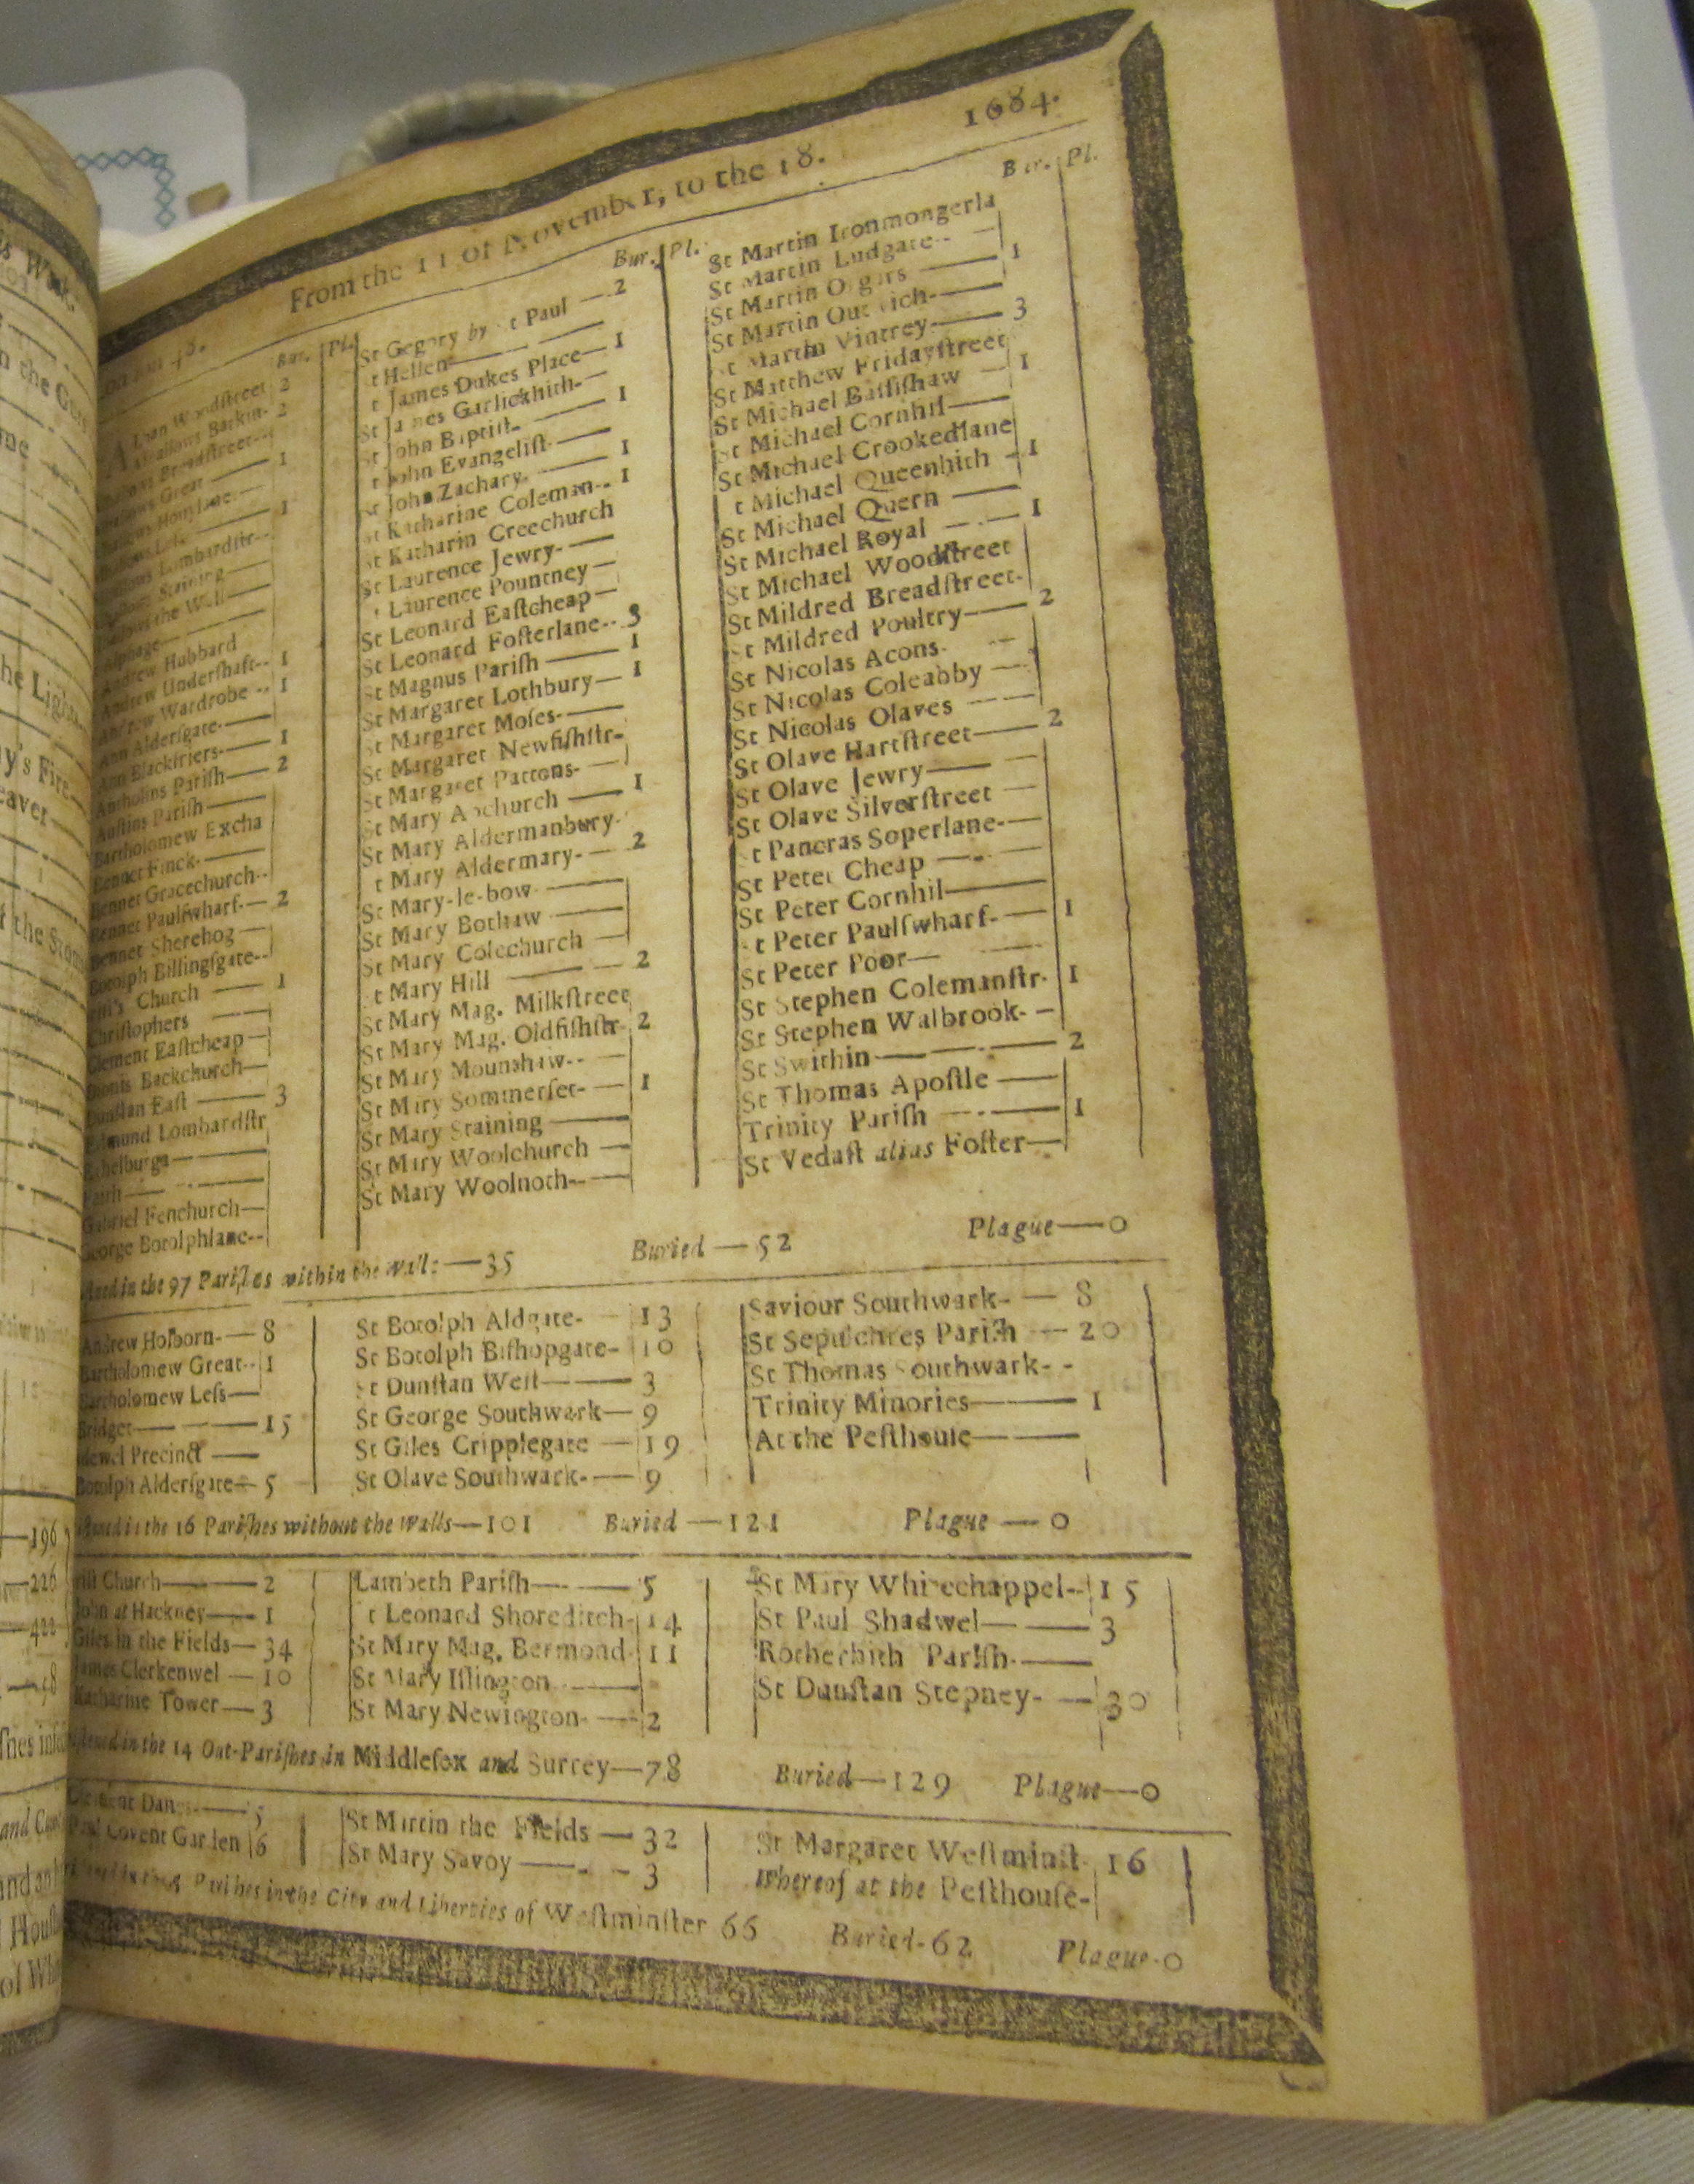 From the 11 of November, to the 18. 1684.
Bur. Pl.
Woodstreet 2
Barkin- 2
Breadstreet--
Great 1
Honylane
1
Lombardstr--
Staining
the Wall
Alphage
Andrew Hubbard
Andrew Undershaft-- 1
Andrew Wardrobe -- 1
Ann Aldersgate-
Ann Blackfriers- 1
Antholins Parish 2
Austins Parish
Bartholomew Excha
Bennet Finck-
Bennet Gracechurch--
Bennet Paulſwharf- 2
Bennet Sherehog
Botolph Billingſgate--
Church 1
Chriſtophers
Clement Eaſtcheap
Dionis Backchurch
Dunſtan Eaſt 3
Edmund Lombardſtr
Ethelburga
Faith
Gabriel Fenchurch
George Botolphlane--
Bur. Pl.
St Gregory by St Paul — 2
t Hellen
t James Dukes Place— 1
St James Garlickhith-
St John Baptiſt- 1
t John Evangeliſt-
St John Zachary- 1
St Katharine Coleman-- 1
St Katharin Creechurch
St Laurence Jewry-
Laurence Pountney
St Leonard Eaſtcheap
St Leonard Foſterlane-- 3
St Magnus Pariſh 1
St Margaret Lothbury 1
St Margaret Moſes-
St Margaret Newfiſhſtr-
St Margaret Pattons-
St Mary Abchurch 1
St Mary Aldermanbury-
t Mary Aldermary- 2
St Mary-le-bow
St Mary Bothaw
St Mary Colechurch
t Mary Hill 2
St Mary Mag. Milkſtreet
St Mary Mag. Oldfiſhſtr 2
St Mary Mounthaw--
St Mary Sommerſet- 1
St Mary Staining
St Mary Woolchurch
St Mary Woolnoth--
Bur. Pl.
St Martin Ironmongerla
St Martin Ludgate--
St Martin Orgars 1
St Martin Outwich-
St Martin Vintrey 3
St Matthew Fridayſtreet
St Michael Baſſiſhaw 1
St Michael Cornhil
St Michael Crookedlane
t Michael Queenhith 1
St Michael Quern
St Michael Royal 1
St Michael Woodſtreet
St Mildred Breadſtreet-
St Mildred Poultry 2
St Nicolas Acons-
St Nicolas Coleabby
St Nicolas Olaves
St Olave Hartſtreet 2
St Olave Jewry
St Olave Silverſtreet
t Pancras Soperlane-
St Peter Cheap
St Peter Cornhil
t Peter Paulſwharf- 1
St Peter Poor
St Stephen Colemanſtr- 1
St Stephen Walbrook-
St Swithin 2
St Thomas Apoſtle
Trinity Pariſh 1
St Vedaſt alias Foſter
in the 97 Pariſhes within the walls—35 Buried—52 Plague—0
Andrew Holborn-— 8
Bartholomew Great-- 1
Bartholomew Leſs—
Bridget 15
Precinct
Botolph Alderſgate— 5
St Botolph Aldgate- 13
St Botolph Biſhopgate- 10
St Dunſtan Weſt 3
St George Southwark— 9
St Giles Cripplegate — 19
St Olave Southwark- 9
Saviour Southwark- — 8
St Sepulchres Pariſh — 20
St Thomas Southwark- -
Trinity Minories 1
At the Peſthouſe
in the 16 Pariſhes without the Walls—101 Buried—121 Plague—0
Church 2
John at Hackney 1
Giles in the Fields— 34
James Clerkenwel — 10
Katharine Tower— 3
Lambeth Pariſh 5
t Leonard Shoreditch- 14
St Mary Mag. Bermond- 11
St Mary Iſlington
St Mary Newington- 2
St Mary Whitechappel-- 15
St Paul Shadwel 3
Rotherhith Pariſh-
St Dunſtan Stepney- 30
in the 14 Out-Pariſhes in Middleſex and Surrey—78 Buried—129 Plague—0
Clement Danes- 5
Paul Covent Garden 6
St Martin the Fields — 32
St Mary Savoy 3
St Margaret Weſtminſt 16
Whereof at the Peſthouſe-
Pariſhes in the City and Liberties of Weſtminſter 66 Buried-62 Plague-0